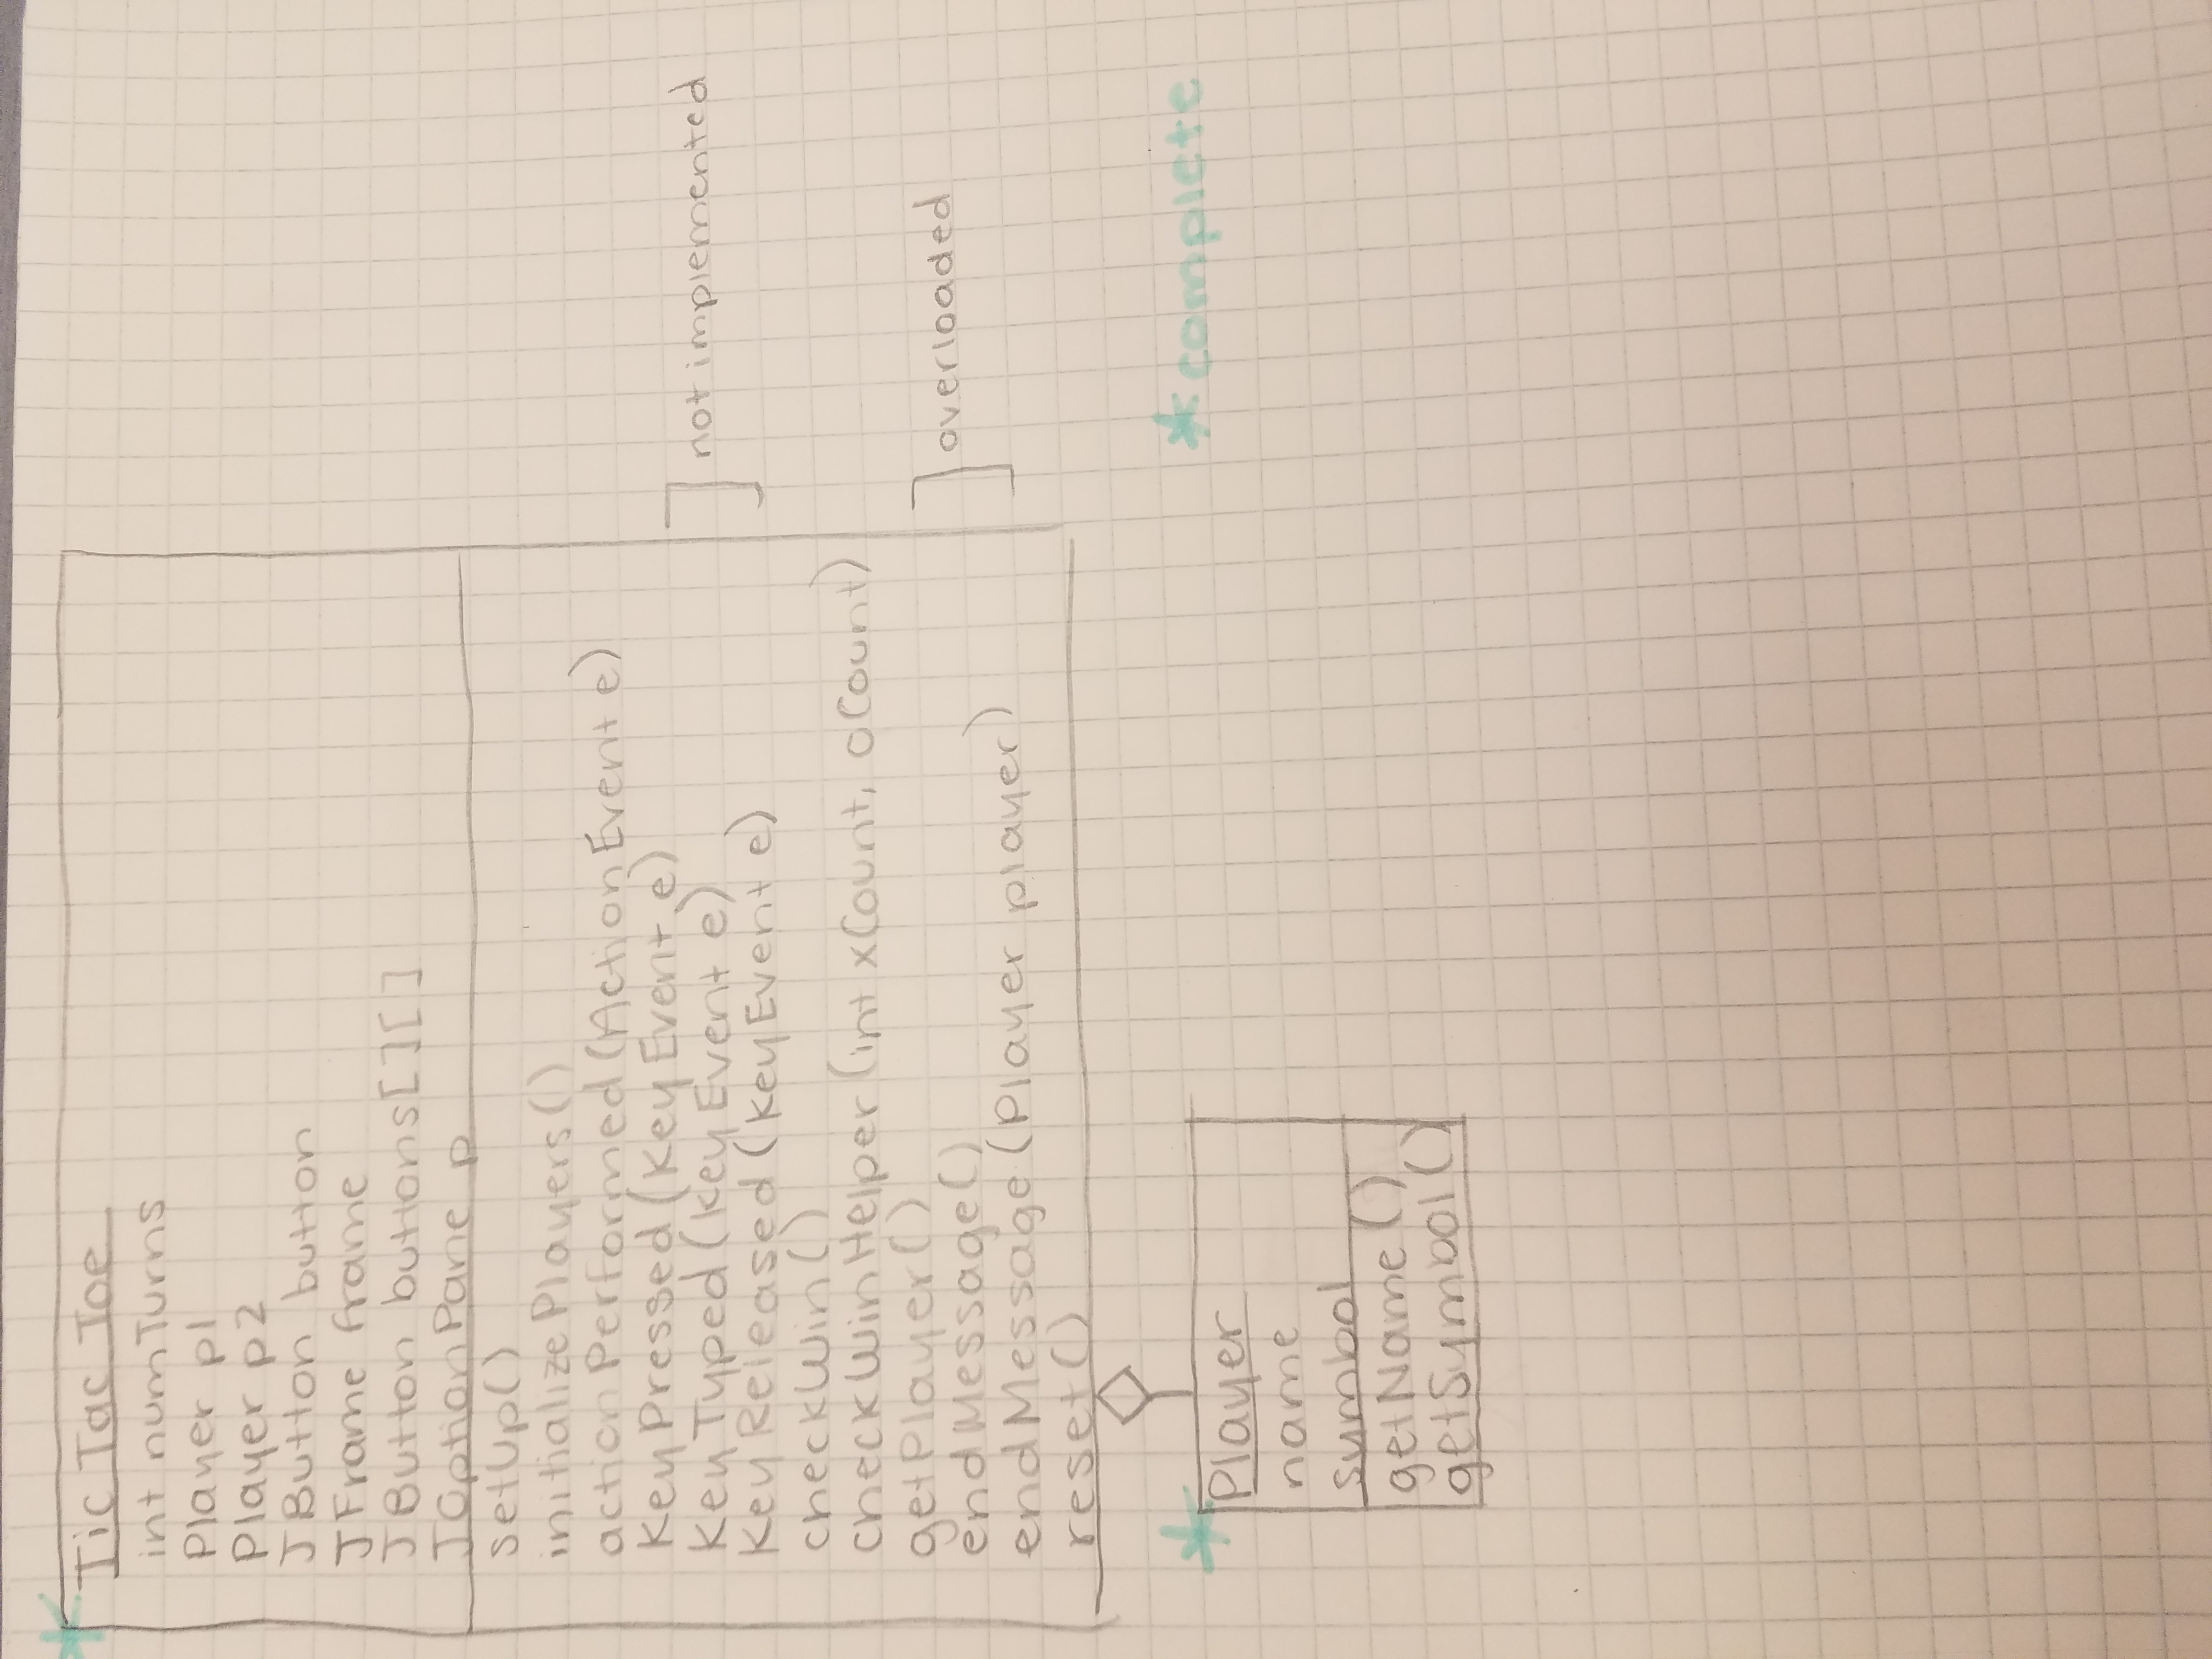 *
Tic Tac Toe
int numTurns
Player p1
Player p2
JButton button
JFrame frame
JButton buttons[][]
JOptionPane p
setUp()
initializePlayers()
actionPerformed(ActionEvent e)
KeyPressed(KeyEvent e)
KeyTyped(KeyEvent e)
] not implemented
KeyReleased(KeyEvent e)
checkWin()
checkWinHelper(int xCount, oCount)
getPlayer()
] overloaded
endMessage()
endMessage(Player player)
reset()
* complete
*
Player
name
symbol
getName()
getSymbol()